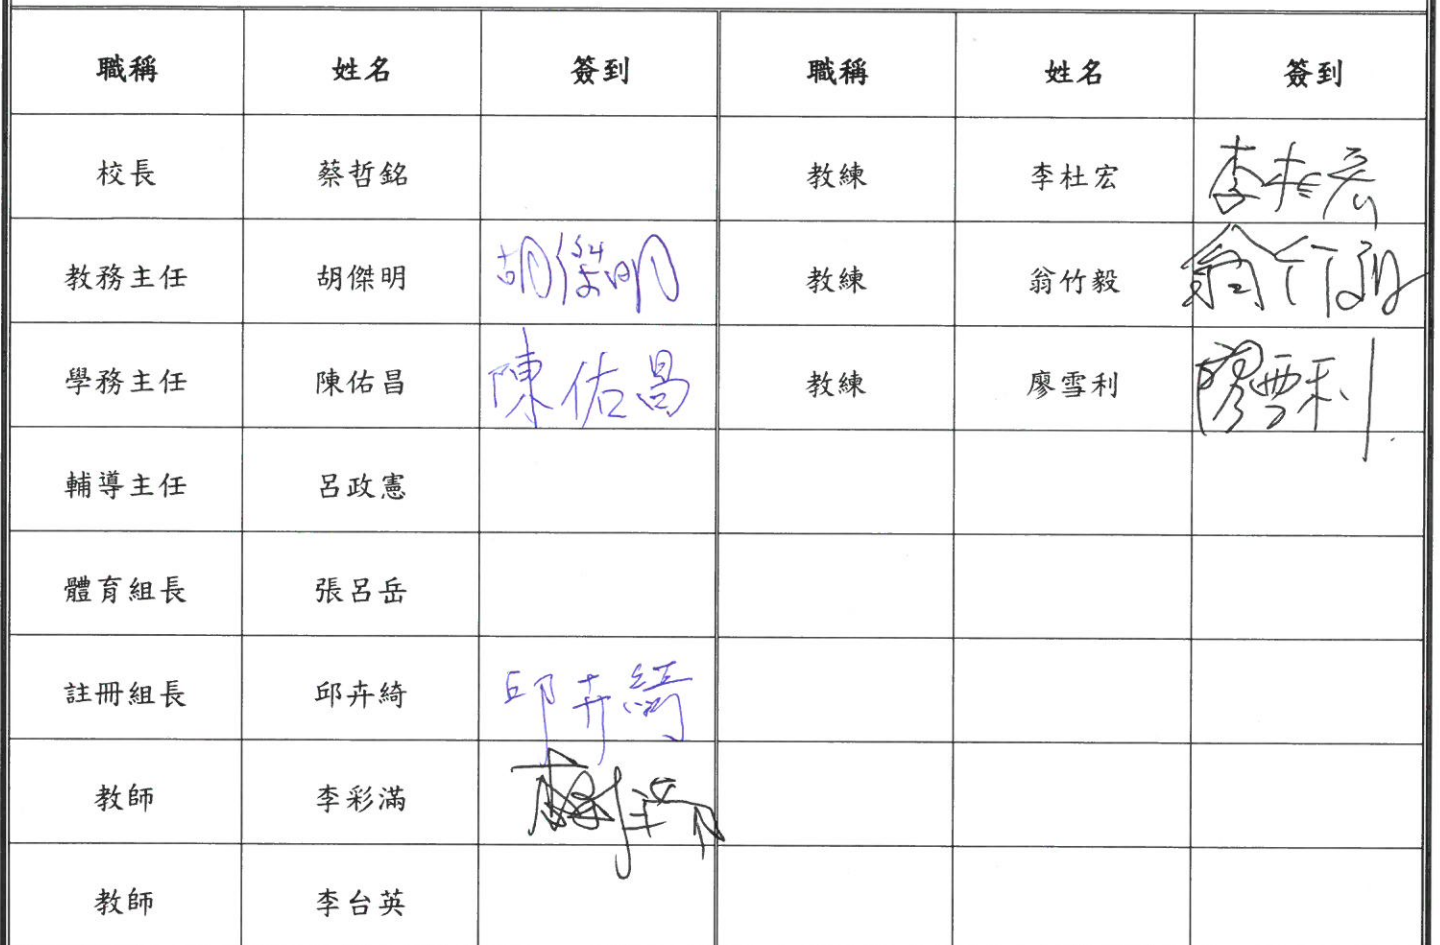 職稱 姓名 簽到 職稱 姓名 簽到
校長 蔡哲銘 教練 李杜宏 李杜宏
教務主任 胡傑明 胡傑明 教練 翁竹毅 翁竹毅
學務主任 陳佑昌 陳佑昌 教練 廖雪利 廖雪利
輔導主任 呂政憲
體育組長 張呂岳
註冊組長 邱卉綺 邱卉綺
教師 李彩滿
教師 李台英